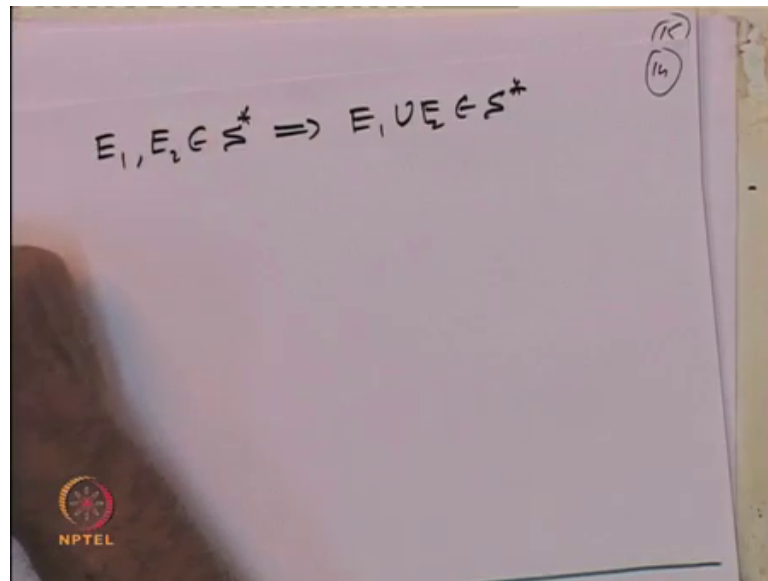 (15)
(14)
E₁, E₂ ∈ S* ⟹ E₁ ∪ E₂ ∈ S*
NPTEL